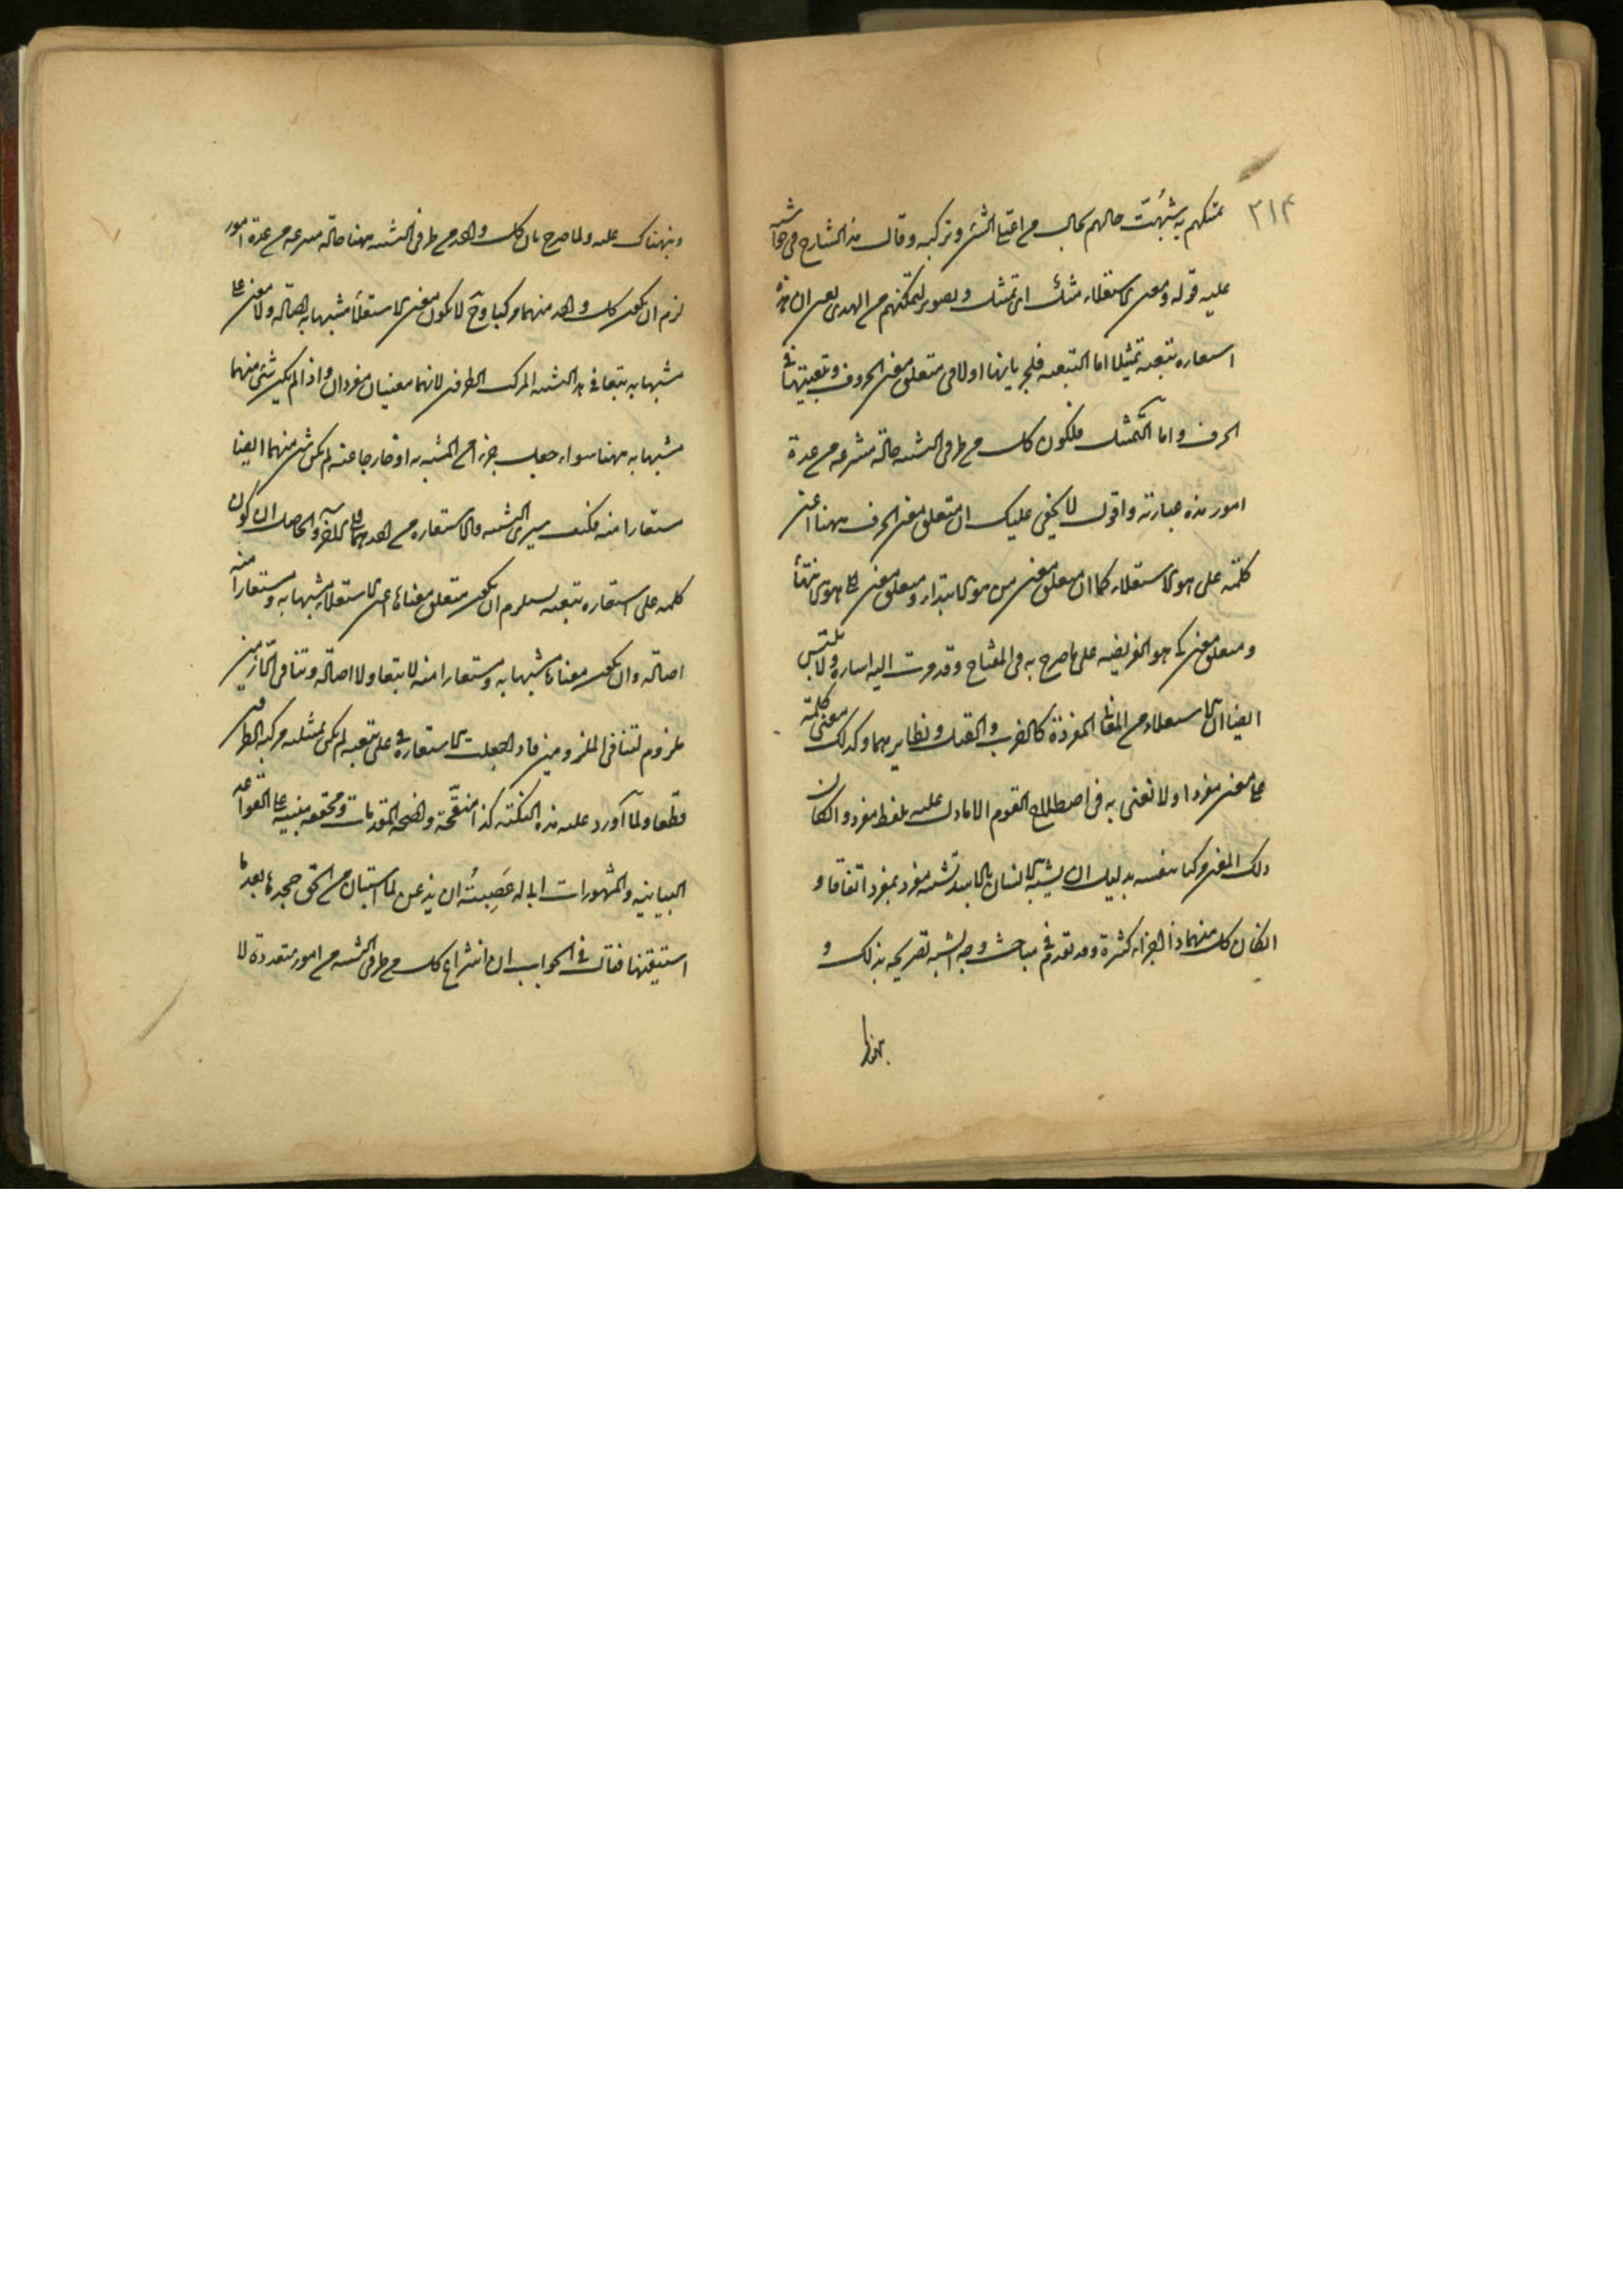 ٢١٤
تمسكهم به شُبّهت حالهم بحال من اعتلى الشئ وركبه وقال هذا الشارح فى حاشيته
عليه قوله ومعنى الاستعلاء مثل اى تمثيل وتصوير لتمكنهم من الهدى يعنى ان هذه
استعارة تبعية تمثيلا اما التبعية فلجريانها اولا فى متعلق معنى الحرف وتبعيتها فى
الحرف واما التمثيل فلكون كل من طرفى التشبيه حالة منتزعة من عدة
امور هذه عبارته واقول لا يخفى عليك ان متعلق معنى الحرف ههنا اعنى
كلمة على هو الاستعلاء كما ان متعلق معنى من هو الابتداء ومتعلق معنى الى هو الانتهاء
ومتعلق معنى كى هو الغرضية على ما صرح به فى المفتاح وقد مرت اليه اشارة ولا يلتبس
ايضا ان الاستعلاء من المعانى المفردة كالضرب والقتل ونظايرهما وكذلك معنى كلمة
على معنى مفردا ولا نعنى به فى اصطلاح القوم الا ما دل عليه بلفظ مفرد وان كان
ذلك المعنى مركبا فى نفسه بدليل ان تشبيه الانسان بالاسد تشبيه مفرد بمفرد اتفاقا و
ان كان كل منهما ذا اجزاء كثيرة وقد تقدم فى مباحث وجه الشبه تصريحه بذلك و
نبهناك
ونبهناك عليه ولما صرح بان كل واحد من طرفى التشبيه ههنا حالة منتزعة من عدة امور
لزم ان يكون كل واحد منهما مركبا وح لا يكون معنى الاستعلاء مشبها به اصالة ولا معنى على
مشبها به تبعا فى هذا التشبيه المركب الطرفين لانهما معنيان مفردان واذا لم يكن شئ منهما
مشبها به ههنا سواء جعل جزءا من المشبه به او خارجا عنه لم يكن شئ منهما ايضا
مستعارا منه فكيف يسرى التشبيه والاستعارة من احدهما الى الآخر والحاصل ان كون
كلمة على استعارة تبعية يستلزم ان يكون متعلق معناها اعنى الاستعلاء مشبها به ومستعارا منه
اصالة وان يكون معناها مشبها به ومستعارا منه لا تبعا ولا اصالة وتنافى اللازمين
ملزوم لتنافى الملزومين فاذا جعلت الاستعارة فى على تبعية لم يكن تمثيلية مركبة الطرفين
قطعا ولما أورد عليه هذه النكتة كذا منقّحة واضحة المقدمات ومحققة مبنية على القواعد
البيانية والمشهورات ابى له عَصَبيتُه ان يذعن لما استبان من الحق جحد ما بعد ما
استيقنها فقال فى الجواب ان انتزاع كل من طرفى التشبيه من امور متعددة لا